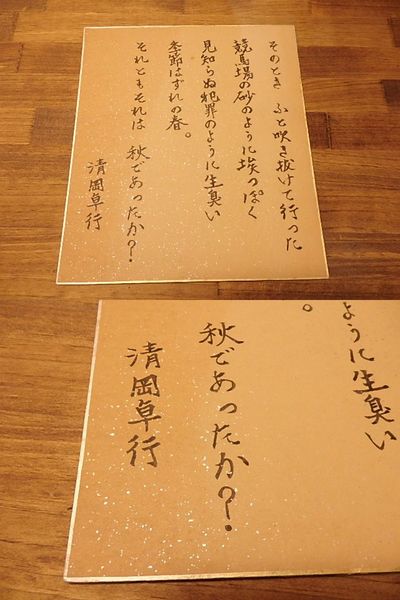 そのとき　ふと吹き抜けて行った
競馬場の砂のように埃っぽく
見知らぬ犯罪のように生臭い
季節はずれの春。
それともそれは　秋であったか？
清岡卓行
ように生臭い
。
秋であったか？
清岡卓行